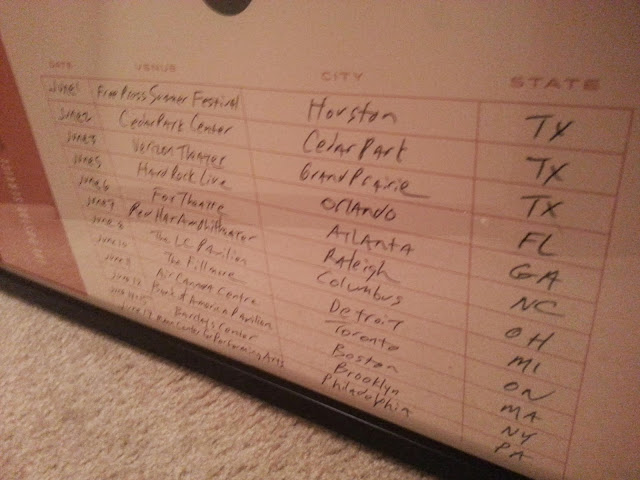 DATE VENUE CITY STATE
June 1 Free Press Summer Festival Houston TX
June 2 Cedar Park Center Cedar Park TX
June 3 Verizon Theater Grand Prairie TX
June 5 Hard Rock Live Orlando FL
June 6 Fox Theatre Atlanta GA
June 7 Red Hat Amphitheater Raleigh NC
June 8 The LC Pavilion Columbus OH
June 10 The Fillmore Detroit MI
Air Canada Centre Toronto ON
June 12 Bank of America Pavilion Boston MA
Barclays Center Brooklyn NY
Center for Performing Arts Philadelphia PA